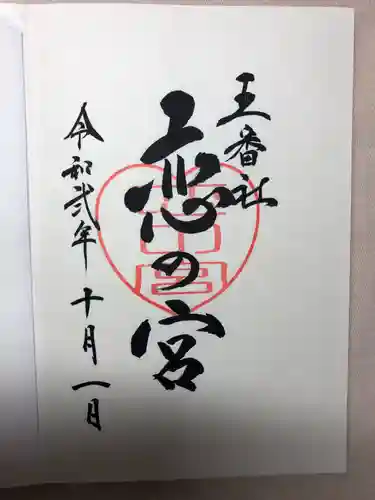 王番社
恋の宮
令和弐年十月一日